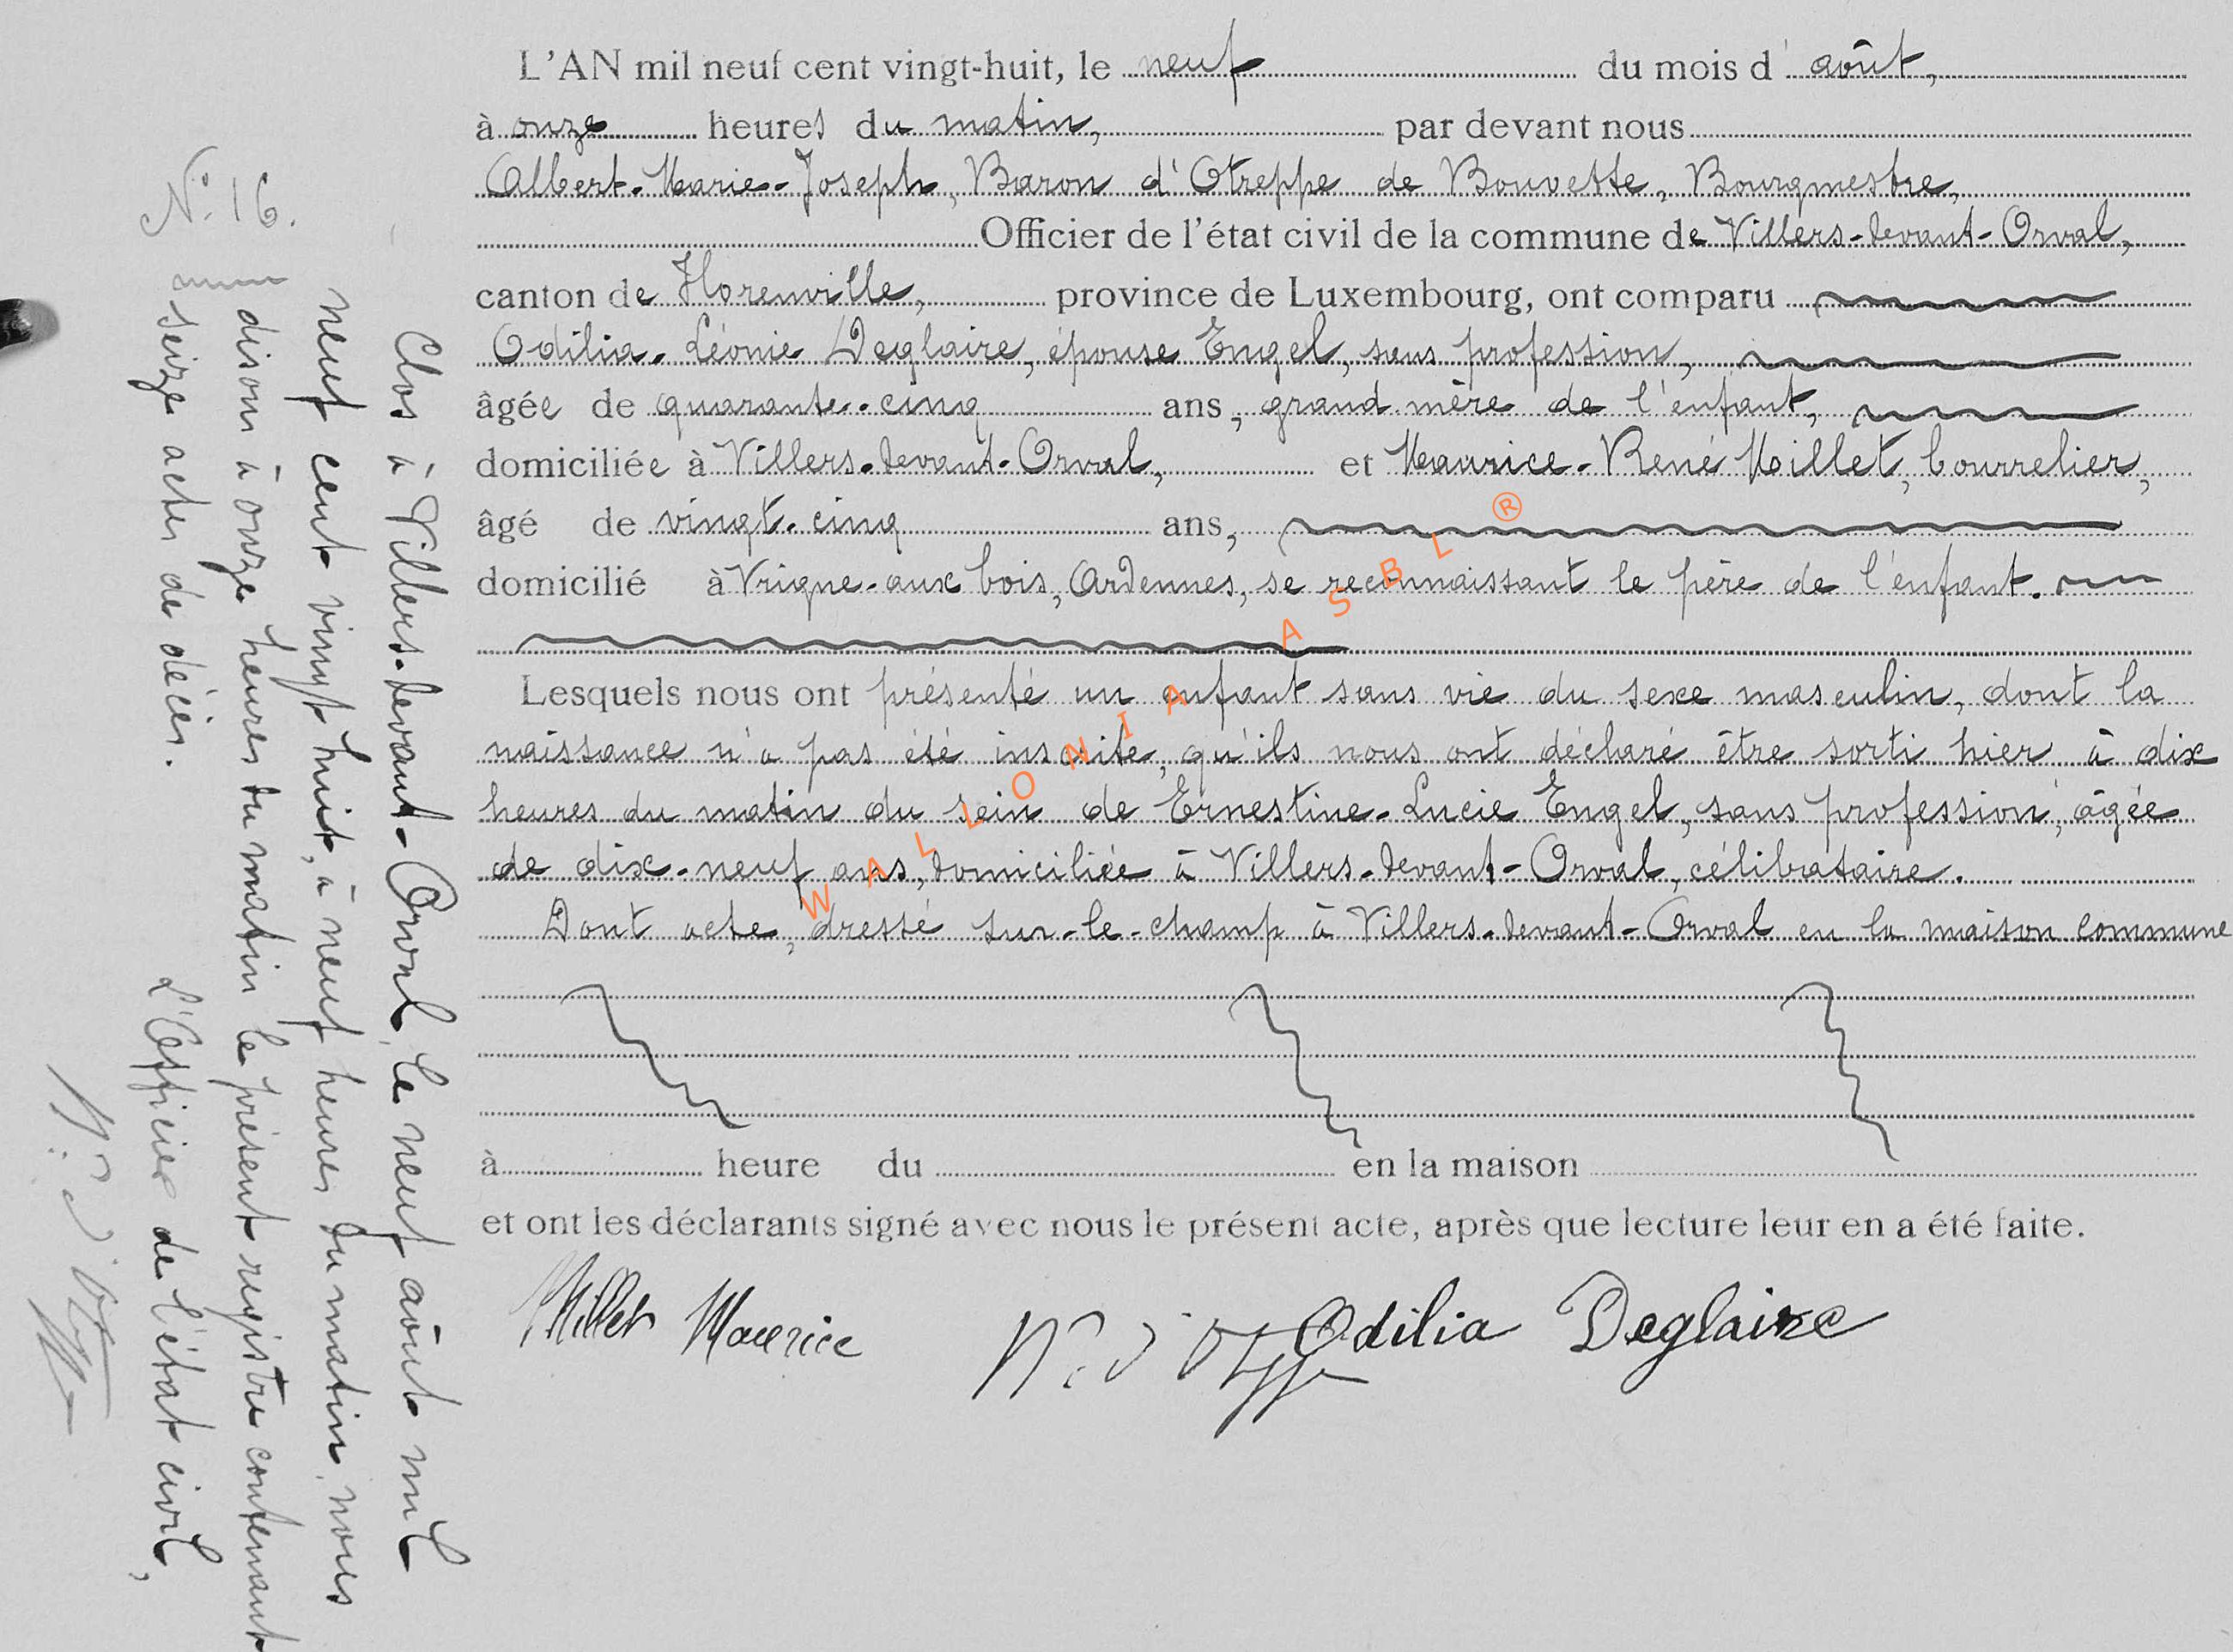 L'AN mil neuf cent vingt-huit, le neuf du mois d'août,
à onze heures du matin, par devant nous
Albert-Marie-Joseph, Baron d'Otreppe de Bouvette, Bourgmestre,
Officier de l'état civil de la commune de Villers-devant-Orval,
canton de Florenville, province de Luxembourg, ont comparu
Odilia-Léonie Deglaire, épouse Engel, sans profession,
âgée de quarante-cinq ans, grand mère de l'enfant,
domiciliée à Villers-devant-Orval, et Maurice-René Millet, bourrelier,
âgé de vingt-cinq ans,
domicilié à Vrigne-aux bois, Ardennes, se reconnaissant le père de l'enfant.
Lesquels nous ont présenté un enfant sans vie du sexe masculin, dont la
naissance n'a pas été inscrite, qu'ils nous ont déclaré être sorti hier à dix
heures du matin du sein de Ernestine-Lucie Engel, sans profession, âgée
de dix-neuf ans, domiciliée à Villers-devant-Orval, célibataire.
Dont acte, dressé sur-le-champ à Villers-devant-Orval en la maison commune
à heure du en la maison
et ont les déclarants signé avec nous le présent acte, après que lecture leur en a été faite.
Millet Maurice Odilia Deglaire
N° 16.
Clos à Villers-devant-Orval, le neuf août mil
neuf cent vingt huit, à neuf heures du matin, nous
disons à onze heures du matin le présent registre contenant
seize actes de décès.
L'Officier de l'état civil,
WALLONIA ASBL ®